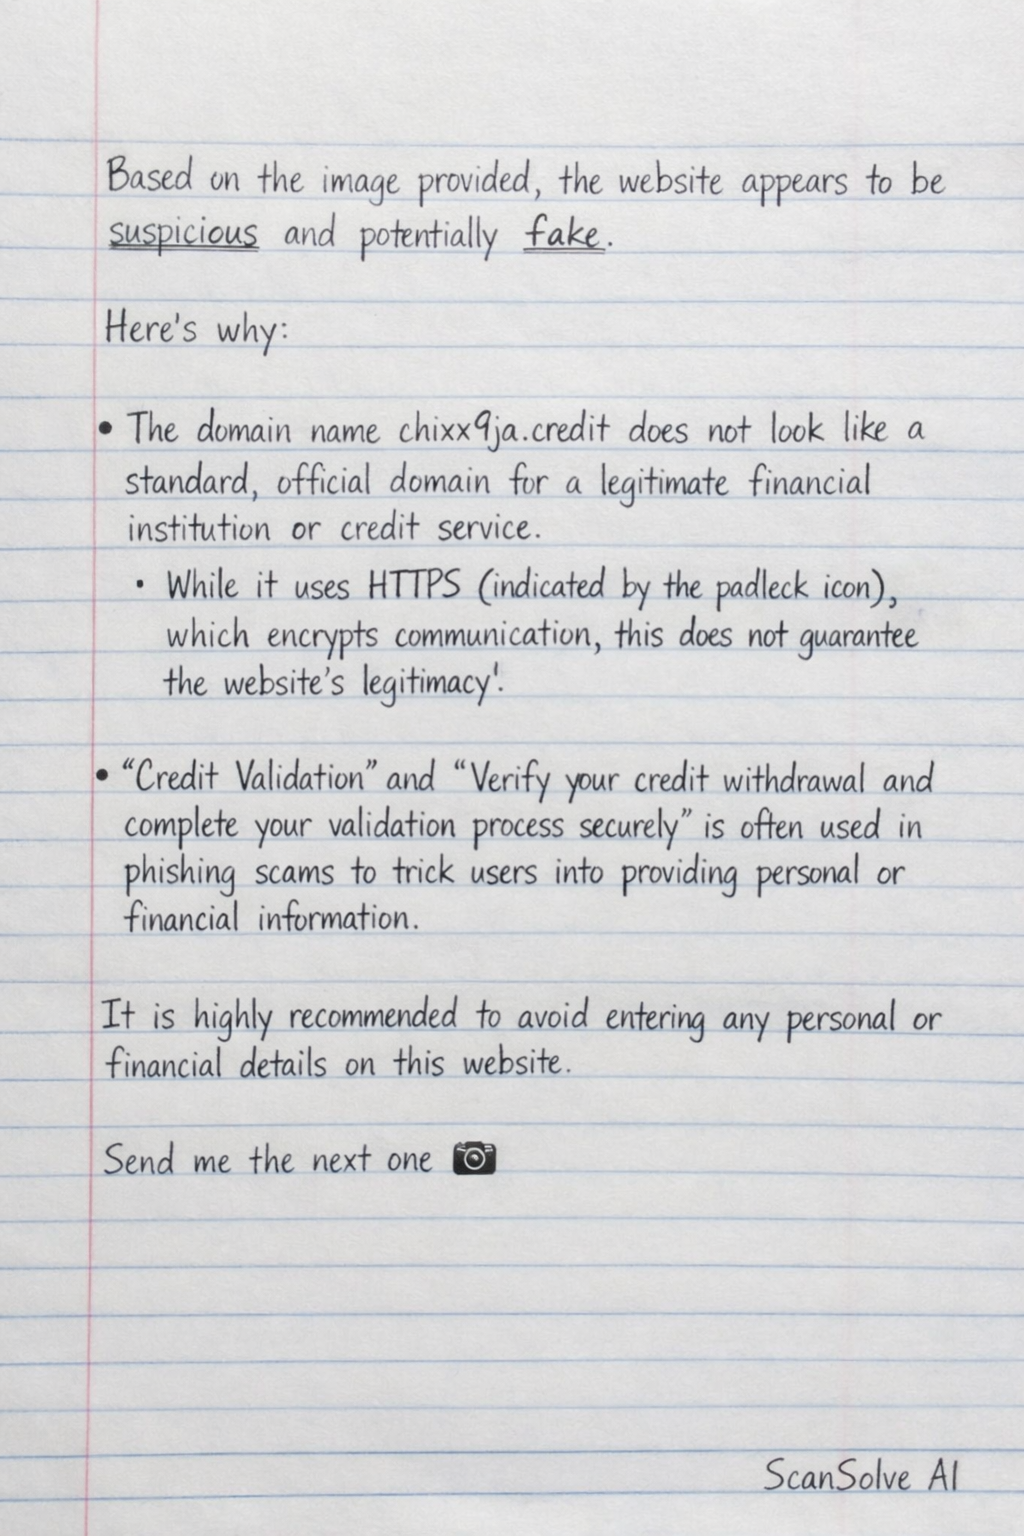 Based on the image provided, the website appears to be
suspicious and potentially fake.
Here's why:
• The domain name chixx9ja.credit does not look like a
standard, official domain for a legitimate financial
institution or credit service.
• While it uses HTTPS (indicated by the padleck icon),
which encrypts communication, this does not guarantee
the website's legitimacy'.
• “Credit Validation” and “Verify your credit withdrawal and
complete your validation process securely” is often used in
phishing scams to trick users into providing personal or
financial information.
It is highly recommended to avoid entering any personal or
financial details on this website.
Send me the next one 📷
ScanSolve AI